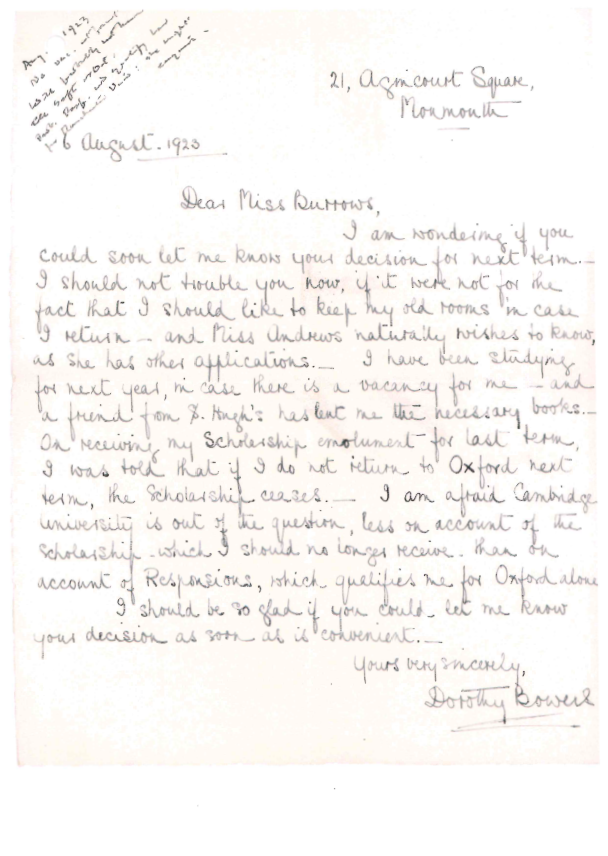 Aug. 1923
No vac.
Will
6 August. 1923
21, Agincourt Square,
Monmouth
Dear Miss Burrows,
I am wondering if you
could soon let me know your decision for next term. —
I should not trouble you now, if it were not for the
fact that I should like to keep my old rooms in case
I return — and Miss Andrews naturally wishes to know,
as she has other applications. — I have been studying
for next year, in case there is a vacancy for me — and
a friend from S. Hugh's has lent me the necessary books. —
On receiving my Scholarship emolument for last term,
I was told that if I do not return to Oxford next
term, the Scholarship ceases. — I am afraid Cambridge
University is out of the question, less on account of the
Scholarship - which I should no longer receive - than on
account of Responsions, which qualifies me for Oxford alone
I should be so glad if you could let me know
your decision as soon as is convenient. —
Yours very sincerely,
Dorothy Bowers